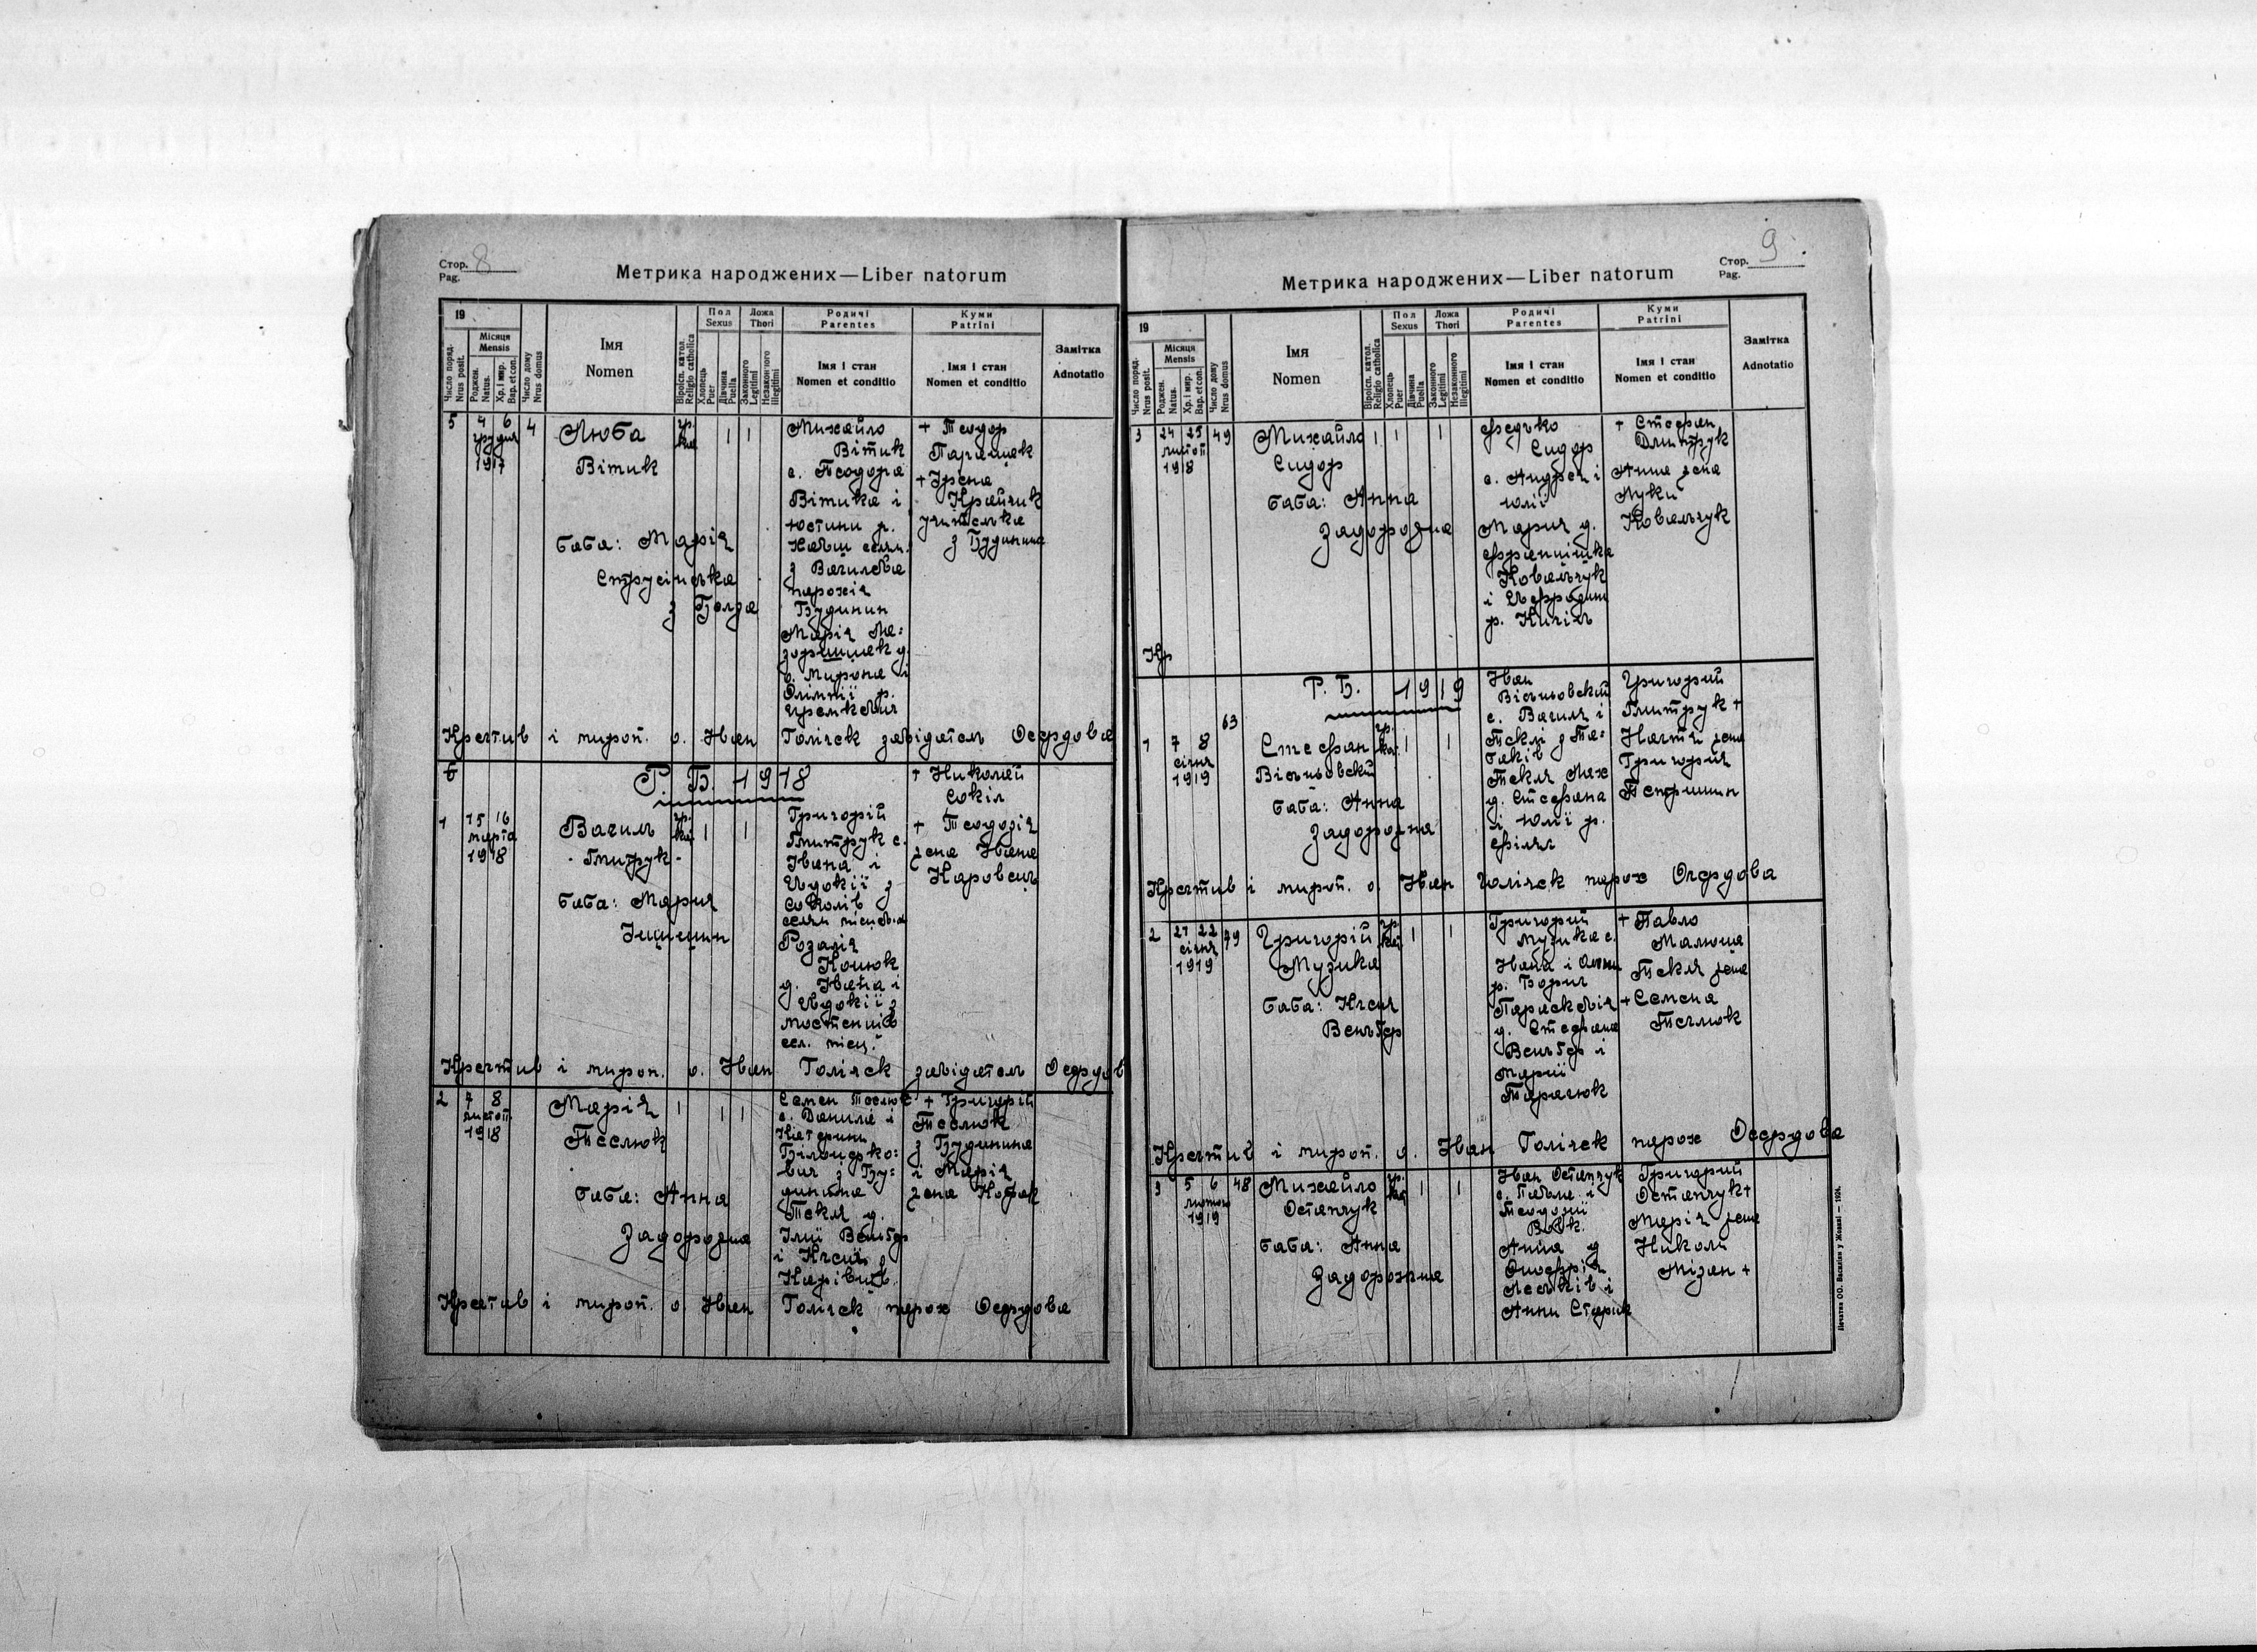 Стор. 8
Pag.
Метрика народжених—Liber natorum
19
Число поряд. Nrus posit.
Місяця Mensis
Роджен. Natus.
Хр. і мир. Bap. et con.
Число дому Nrus domus
Імя
Nomen
Віроісп. катол. Religio catholica
Пол
Sexus
Хлопець Puer
Дівчина Puella
Ложа
Thori
Законного Legitimi
Незаконного illegitimi
Родичі
Parentes
Імя і стан
Nomen et conditio
Куми
Patrini
Імя і стан
Nomen et conditio
Замітка
Adnotatio
5 4 6 4
грудня
1917
Люба
Вітик
баба: Марія
Струсінська
з Белза
гр. ка
1 1
Михайло
Вітик
с. Теодора
Вітика і
Юстини р.
з Василева
парохія
Будинин
Марія Ма=
д.
о. Мирона і
Олімпії р.
+ Теодор
+ Ірена
Крайчик
учителька
з Будинина
Крестив і мироп. о. Іван Голінск завідатель Осердова
Р. Б. 1918
1 15 16
марта
1918
Василь
Гмитрук
баба: Мария
гр. ка
1 1
Григорій
Гмитрук с.
Івана і
Евдокії з
Соколів
Розалія
Коцюк
д. Івана і
Евдокії з
сел. місц.
+ Николай
Сокіл
+ Теодозія
жена Івана
Каровець
Крестив і мироп. о. Іван Голінск завідатель Осердов
2 7 8
листоп
1918
Марія
Теслюк
баба: Анна
Задорожна
1 1 1
Семен Теслюк
с. Данила і
Катерини
Білоцерко=
вич з Бу=
динина
Текля д.
Ілії Венґер
і Ксенії
+ Григорій
Теслюк
з Будинина
і Марія
жена
Крестив і мироп. о. Іван Голінск парох Осердова
Стор. 9
Pag.
Метрика народжених—Liber natorum
19
Число поряд. Nrus posit.
Місяця Mensis
Роджен. Natus.
Хр. і мир. Bap. et con.
Число дому Nrus domus
Імя
Nomen
Віроісп. катол. Religio catholica
Пол
Sexus
Хлопець Puer
Дівчина Puella
Ложа
Thori
Законного Legitimi
Незаконного illegitimi
Родичі
Parentes
Імя і стан
Nomen et conditio
Куми
Patrini
Імя і стан
Nomen et conditio
Замітка
Adnotatio
3 24 25 49
листоп
1918
Михайло
Сидор
баба: Анна
Задорожна
1 1 1
Федько
Сидор
с. Андрея і
Юлії
Мария д.
Францішка
Ковальчук
і
р. Кисіль
+ Стефан
Дмитрук
Анна жена
Луки
Ковальчук
Кр
Р. Б. 1919
1 7 8 63
січня
1919
Стефан
баба: Анна
Задорожна
гр. ка.
1 1
Іван
с. Василя і
Теклі з
Текля Мах
д. Стефана
і Юлії р.
Григорий
Гмитрук +
Настя жена
Григория
Крестив і мироп. о. Іван Голінск парох Осердова
2 21 22 79
січня
1919
Григорій
Музика
баба: Ксеня
Венґер
гр. кат
1 1
Григорий
Музика с.
Івана і Анни
Параскевія
д. Стефана
Венґер і
Марії
Тарасюк
+ Павло
Малюша
Текля жена
+ Семена
Теслюк
Крестив і мироп. о. Іван Голінск парох Осердова
3 5 6 48
лютого
1919
Михайло
Остапчук
баба: Анна
Задорожна
гр. ка
1 1
Іван Остапчук
с. Павла і
Теодозії
Вовк.
Анна д
Онофрія
Леськів і
Анни
Григорий
Остапчук+
Марія жена
Николи
Мізан +
Печатня ОО. Василіян у Жовкві — 1924.